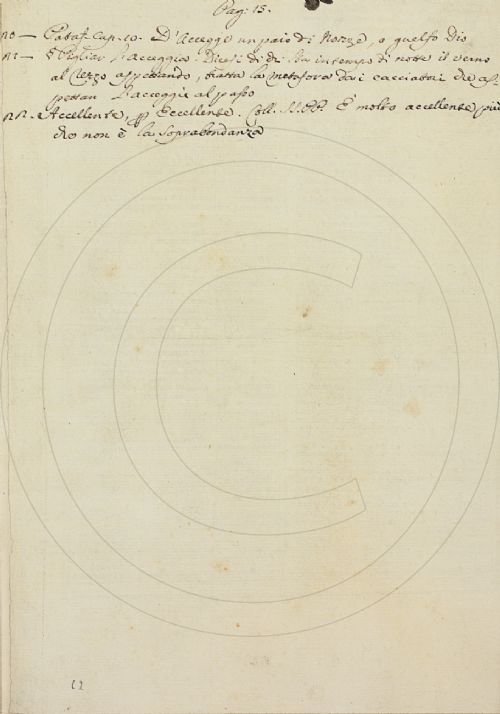 Pag: 15.
20 — Pataf. Cap. 10. D'Accegge un paio di Nozze, o guelfo Dio
21 — Pigliar l'acceggia. Dicesi di chi sta in tempo di notte il verno
al rezzo aspettando, tratta la metafora dai cacciatori che as-
pettan l'acceggie al passo
22. Accellente, p Eccellente. Coll. SS. PP. È molto accellente, più
che non è la soprabondanza
12